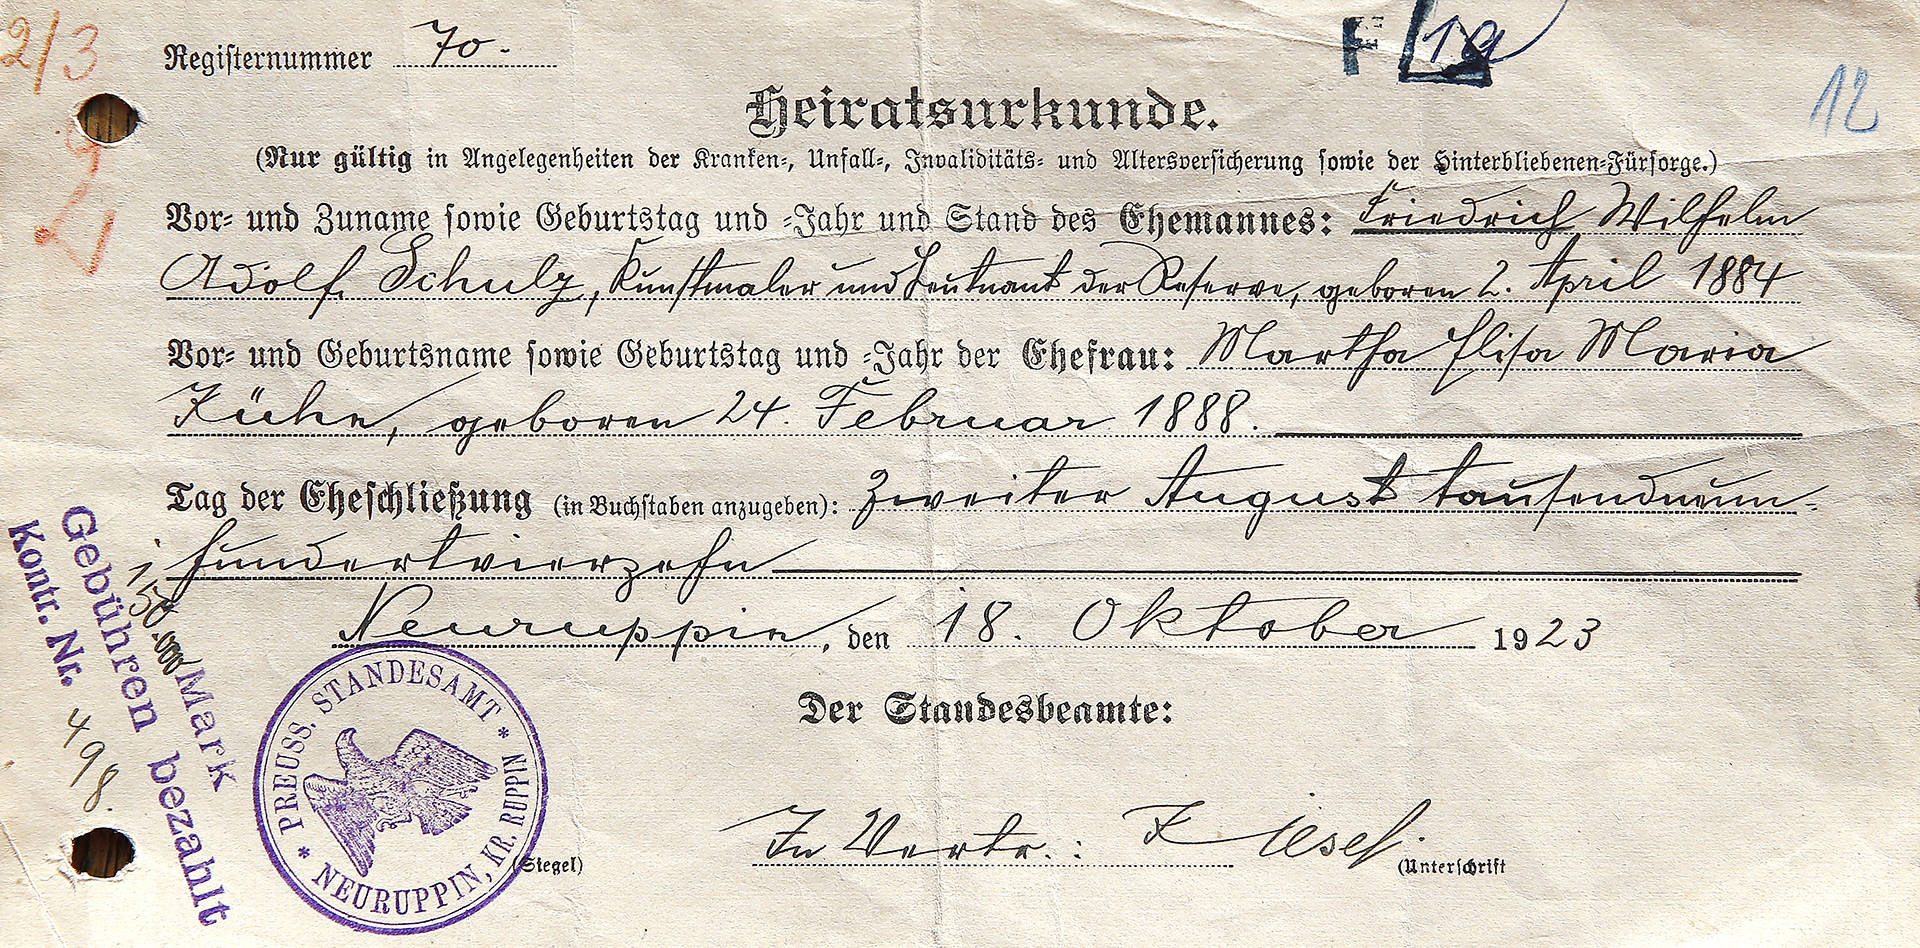 2/3
Registernummer 70.
F 19
12
Heiratsurkunde.
(Nur gültig in Angelegenheiten der Kranken-, Unfall-, Invaliditäts- und Altersversicherung sowie der Hinterbliebenen-Fürsorge.)
Vor- und Zuname sowie Geburtstag und -Jahr und Stand des Ehemannes: Friedrich Wilhelm
Adolf Schulz, Kunstmaler und Leutnant der Reserve, geboren 2. April 1884
Vor- und Geburtsname sowie Geburtstag und -Jahr der Ehefrau: Martha Elisa Maria
Kühn, geboren 24. Februar 1888.
Tag der Eheschließung (in Buchstaben anzugeben): Zweiter August tausendneun-
hundertvierzehn
Neuruppin, den 18. Oktober 1923
Der Standesbeamte:
In Vertr.:
(Siegel)
(Unterschrift
* PREUSS. STANDESAMT *
NEURUPPIN, KR. RUPPIN
Mark
Gebühren bezahlt
Kontr. Nr. 498.